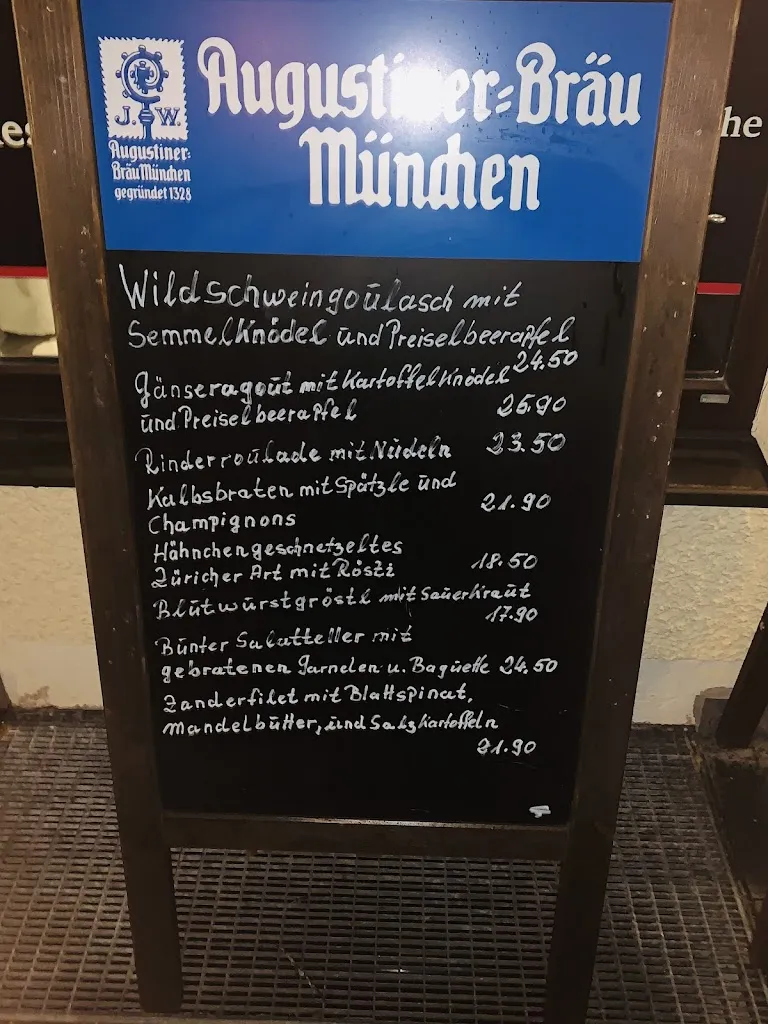 J. W.
Augustiner-
Bräu München
gegründet 1328
Augustiner-Bräu
München
he
Wildschweingoulasch mit
Semmelknödel und Preiselbeerapfel
24.50
Gänseragout mit Kartoffelknödel
und Preiselbeerapfel 26.90
Rinderroulade mit Nudeln 23.50
Kalbsbraten mit Spätzle und
Champignons 21.90
Hähnchengeschnetzeltes
Züricher Art mit Rösti 18.50
Blutwurstgröstl mit Sauerkraut
17.90
Bunter Salatteller mit
gebratenen Garnelen u. Baguette 24.50
Zanderfilet mit Blattspinat,
Mandelbutter, und Salzkartoffeln
21.90